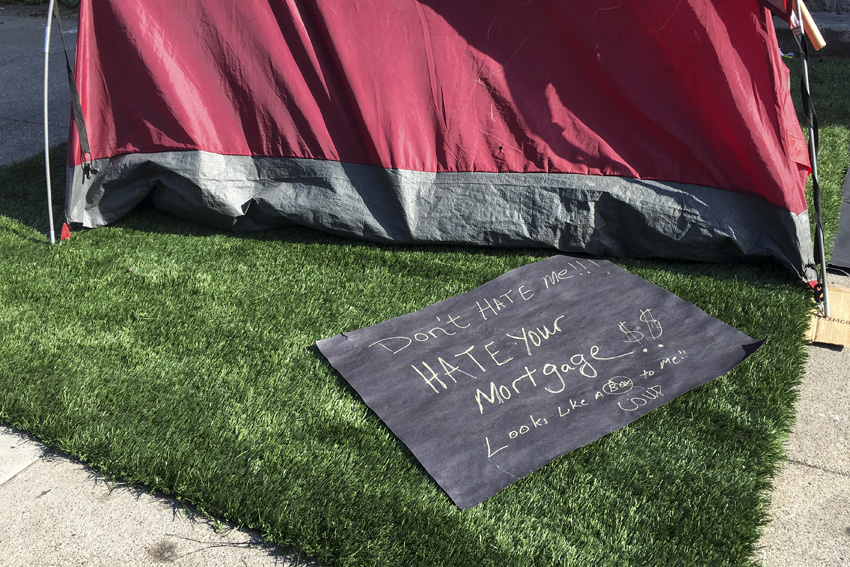 Don't HATE me!!!!
HATE Your $$
Mortgage...
Looks Like A Box to me!!